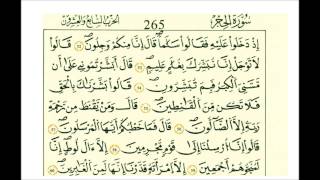 سُورَةُ الْحِجْرِ 265 الحزب السابع والعشرون
إِذْ دَخَلُوا۟ عَلَيْهِ فَقَالُوا۟ سَلَٰمًا قَالَ إِنَّا مِنكُمْ وَجِلُونَ ٥٢ قَالُوا۟
لَا تَوْجَلْ إِنَّا نُبَشِّرُكَ بِغُلَٰمٍ عَلِيمٍ ٥٣ قَالَ أَبَشَّرْتُمُونِي عَلَىٰ أَن
مَّسَّنِيَ ٱلْكِبَرُ فَبِمَ تُبَشِّرُونَ ٥٤ قَالُوا۟ بَشَّرْنَٰكَ بِٱلْحَقِّ
فَلَا تَكُن مِّنَ ٱلْقَٰنِطِينَ ٥٥ قَالَ وَمَن يَقْنَطُ مِن رَّحْمَةِ
رَبِّهِۦٓ إِلَّا ٱلضَّآلُّونَ ٥٦ قَالَ فَمَا خَطْبُكُمْ أَيُّهَا ٱلْمُرْسَلُونَ ٥٧
قَالُوٓا۟ إِنَّآ أُرْسِلْنَآ إِلَىٰ قَوْمٍ مُّجْرِمِينَ ٥٨ إِلَّآ ءَالَ لُوطٍ إِنَّا
لَمُنَجُّوهُمْ أَجْمَعِينَ ٥٩ إِلَّا ٱمْرَأَتَهُۥ قَدَّرْنَآ إِنَّهَا لَمِنَ ٱلْغَٰبِرِينَ ٦٠